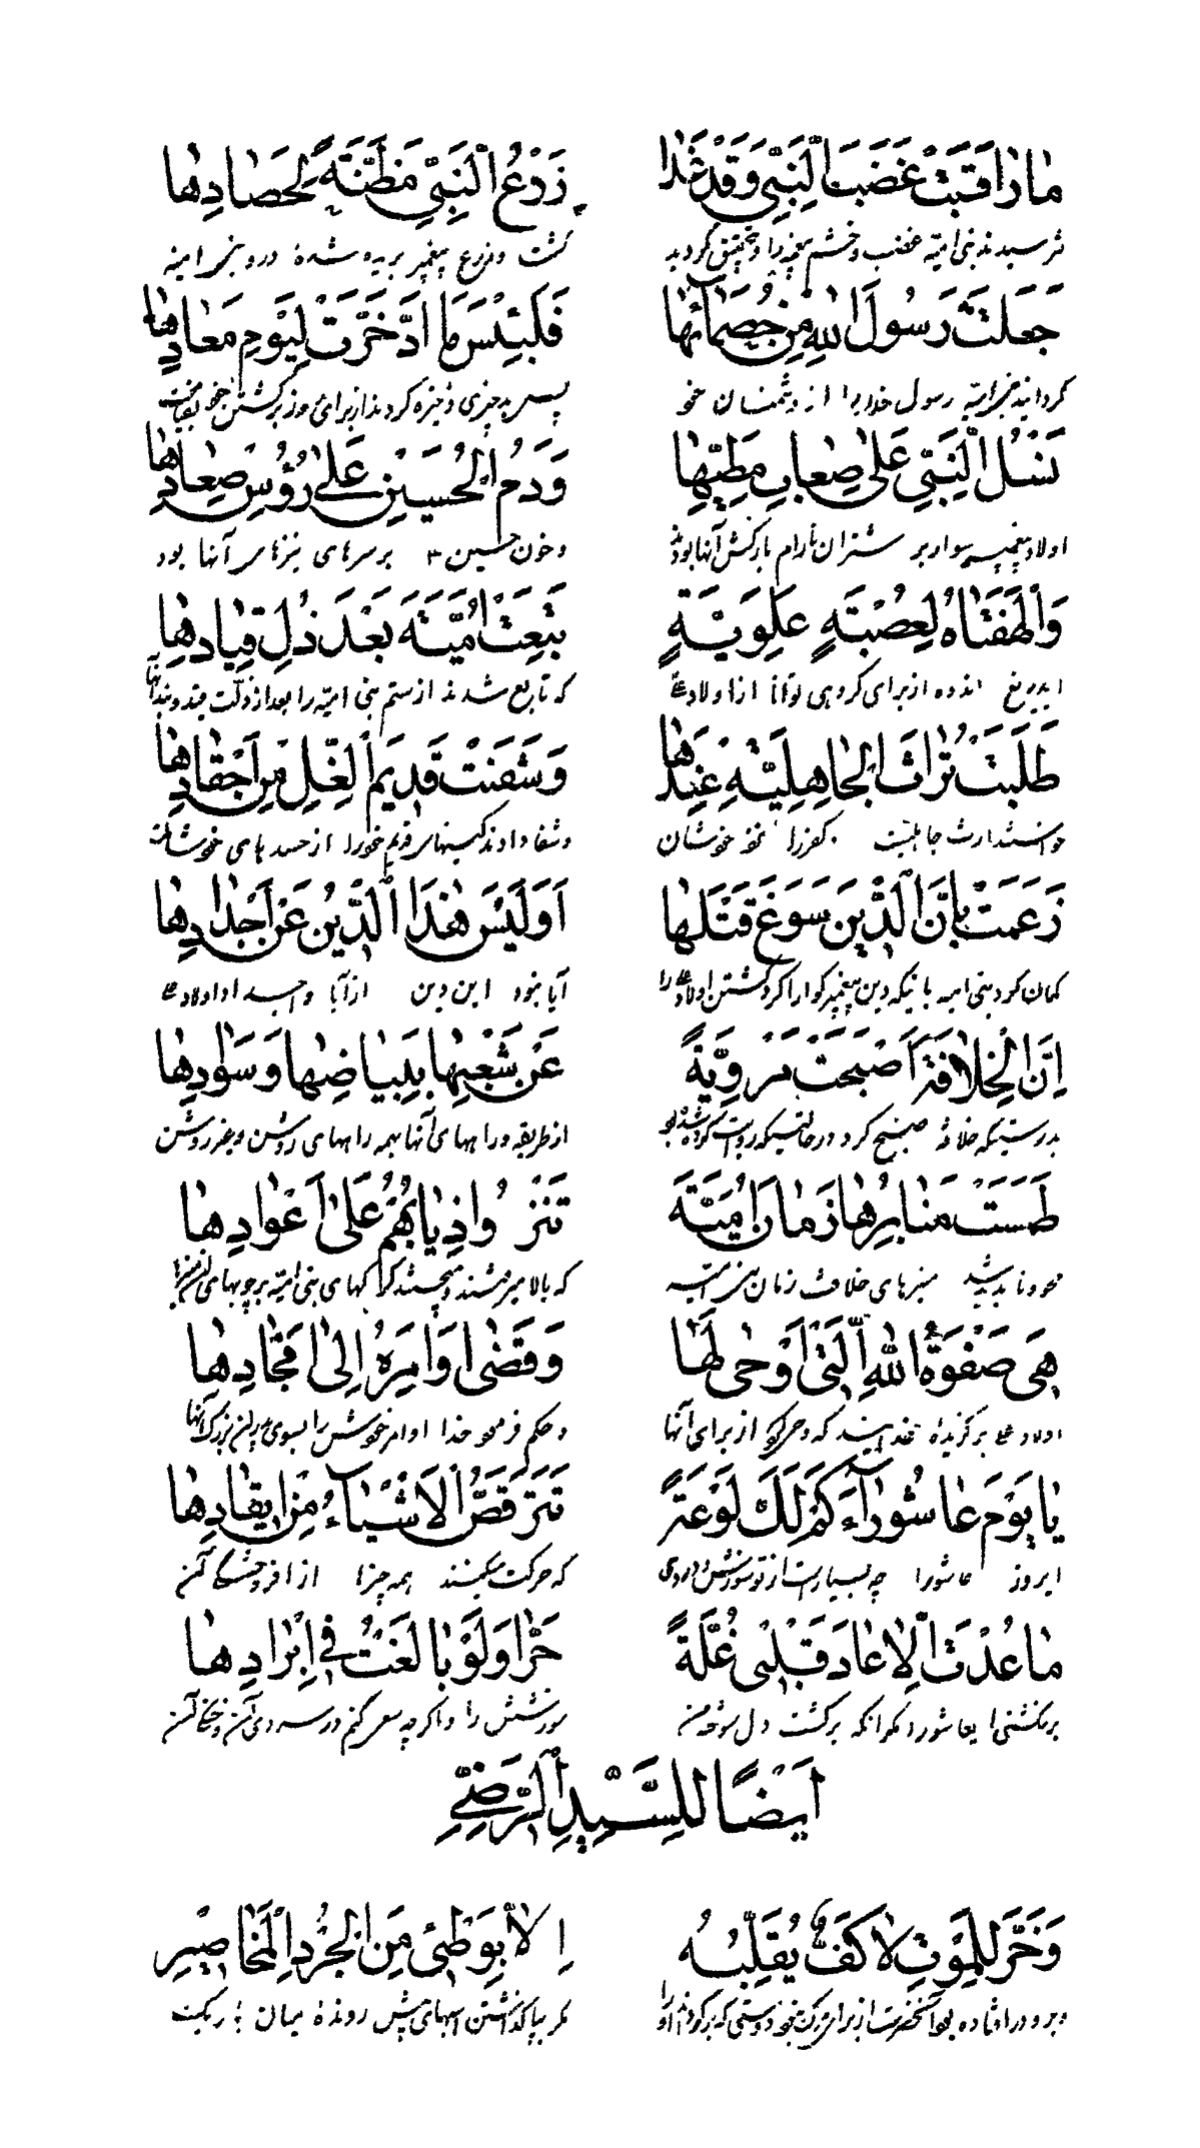 مٰا رٰاقَبَتْ غَضَبَ النَّبِىِّ وَقَدْ غَدٰا زَرْعُ النَّبِىِّ مَظِنَّةً لِحَصٰادِهٰا
نترسیدند بنی امیّه غضب و خشم پیغمبر را و تحقیق گردید کشت و زرع پیغمبر بریده شدهٔ درو بنی امیه
جَعَلَتْ رَسُولَ اللّٰهِ مِنْ خُصَمٰائِهٰا فَلَبِئْسَ مٰا ادَّخَرَتْ لِيَوْمِ مَعٰادِهٰا
گردانید بنی امیّه رسول خدا را از دشمنان خو پس بد چیزی ذخیره کردند از برای روز برگشتن خو
نَسْلُ النَّبِىِّ عَلىٰ صِعٰابِ مَطِيِّهٰا وَدَمُ الْحُسَيْنِ عَلىٰ رُؤُسِ صِعٰادِهٰا
اولاد پیغمبر سوار بر شتران نارام بارکش آنها بودند و خون حسین ع بر سرهای نیزهای آنها بود
وٰا لَهْفَتٰاهُ لِعُصْبَةٍ عَلَوِيَّةٍ تَبِعَتْ اُمَيَّةَ بَعْدَ ذُلِّ قِيٰادِهٰا
ایدریغ اندوه از برای گروهی توانا از اولاد ع که تابع شدند از ستم بنی امیّه را بعد از ذلّت قید و بند آنها
طَلَبَتْ تُرٰاثَ الْجٰاهِلِيَّةِ عِنْدَهٰا وَشَفَتْ قَدِيمَ الْغِلِّ مِنْ اَحْقٰادِهٰا
خواستند ارث جاهلیت کفر را نزد خوشان و شفا دادند کینهای قدیم خود را از حسدهای خوشان
زَعَمَتْ بِاَنَّ الدِّينَ سَوَّغَ قَتْلَهٰا اَوَلَيْسَ هٰذَا الدِّينُ عَنْ اَجْدٰادِهٰا
گمان کرد بنی امیه باینکه دین پیغمبر گوارا کرد کشتن اولاد ع را آیا نبود این دین از آبا و اجداد اولاد ع
اِنَّ الْخِلٰافَةَ اَصْبَحَتْ مَزْوِيَّةً عَنْ شَعْبِهٰا بِبَيٰاضِهٰا وَسَوٰادِهٰا
بدرستیکه خلافة صبح کرد در حالتیکه از طریقه و راههای آنها همه راههای روشن و غیر روشن
طَمَسَتْ مَنٰابِرَهٰا زَمٰانَ اُمَيَّةَ تَنْزُوا ذِيٰابُهُمْ عَلىٰ اَعْوٰادِهٰا
محو و ناپدید شد منبرهای خلافت زمان بنی امیّه که بالا میرفتند و میجستند گرگهای بنی امیّه بر چوبهای
هِىَ صَفْوَةُ اللّٰهِ الَّتِى اَوْحىٰ لَهٰا وَقَضىٰ اَوٰامِرَهُ اِلىٰ اَمْجٰادِهٰا
اولاد ع برگزیدهٔ خدایند که وحی کرد از برای آنها و حکم فرمود خدا اوامر خوش را بسوی بزرگ آنها
يٰا يَوْمَ عٰاشُورٰاءَ كَمْ لَكَ لَوْعَةً تَتَرَقَّصُ الْاَشْيٰاءُ مِنْ اِيقٰادِهٰا
ایروز عاشورا چه بسیار است از تو سوزش و دردی که حرکت میکنند همه چیزا از افروختگی آن
مٰا عُدْتَ اِلّٰا عٰادَ قَلْبِى غُلَّةً حَرّٰا وَلَوْ بٰالَغْتُ فِى اِبْرٰادِهٰا
برنگشتی ایعاشورا مگر آنکه برگشت دل سوخته من سوزشش را و اگر چه سعی کنم در سردی آن و خنکی آن
اَيْضًا لِلسَّيِّدِ الرَّضِىِّ
وَخَرَّ لِلْمَوْتِ لٰا كَفٌّ يُقَلِّبُهُ اِلّٰا بِوَطْئٍ مِنَ الْجُرْدِ الْمَحٰاضِيرِ
و برو در افتاده بود آنحضرت از برای مرگ نبود دستی که برگرداند او را مگر بپا گذاشتن اسبهای پیش روندهٔ میان باریکت